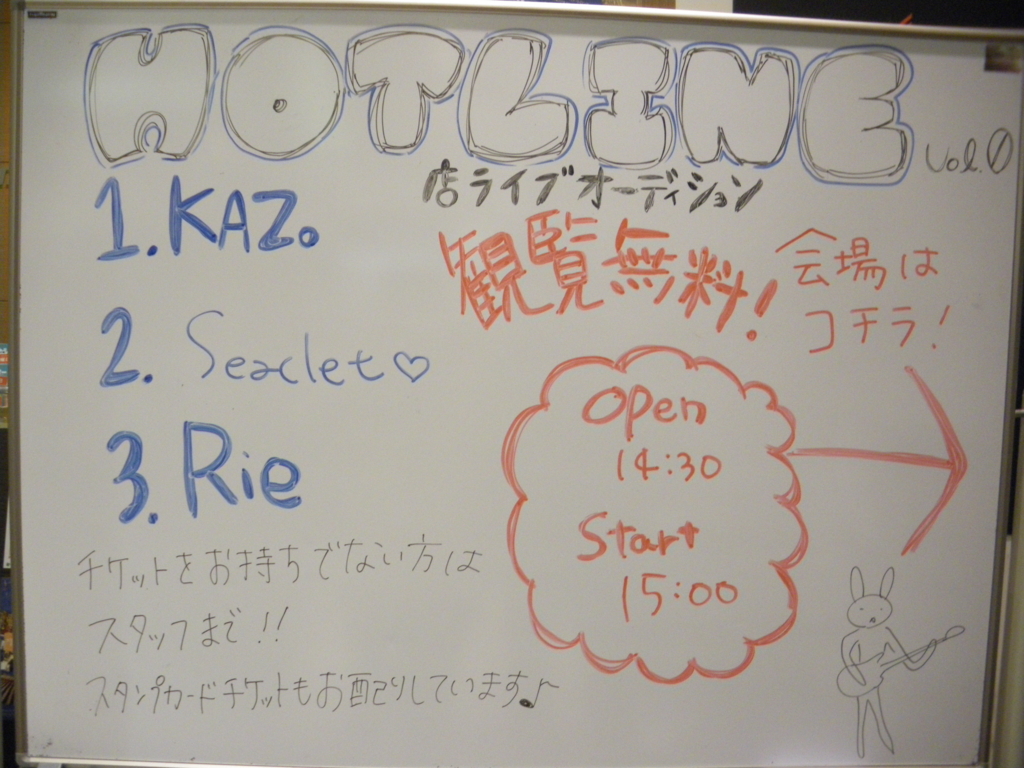 HOTLINE Vol.0
店ライブオーディション
1. KAZ。
観覧無料!
会場は
コチラ!
2. Seaclet♡
Open
14:30
3. Rie
Start
15:00
チケットをお持ちでない方は
スタッフまで!!
スタンプカードチケットもお配りしています♪